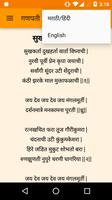 गणपती
मराठी/हिंदी
English
सुख
सुखकर्ता दुखहर्ता वार्ता विघ्नाची |
नुरवी पुर्वी प्रेम कृपा जयाची |
सर्वांगी सुंदर उटी शेंदुराची |
कंठी झळके माळ मुक्ताफळांची ||१||
जय देव जय देव जय मंगलमूर्ती |
दर्शनमात्रे मनकामना पुरती ||
जय देव जय देव
रत्नखचित फरा तुज गौरीकुमरा |
चंदनाची उटी कुमकुम केशरा |
हिरेजडित मुकुट शोभतो बरा |
रुणझुणती नुपुरे चरणी घागरिया ||२||